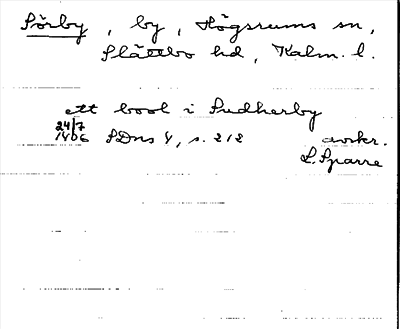 Sörby, by, Högsrums sn,
Slättbo hd, Kalm. l.
ett bool i Sudherby
24/7
1406 SDns 1, s. 212 avskr.
L. Sparre